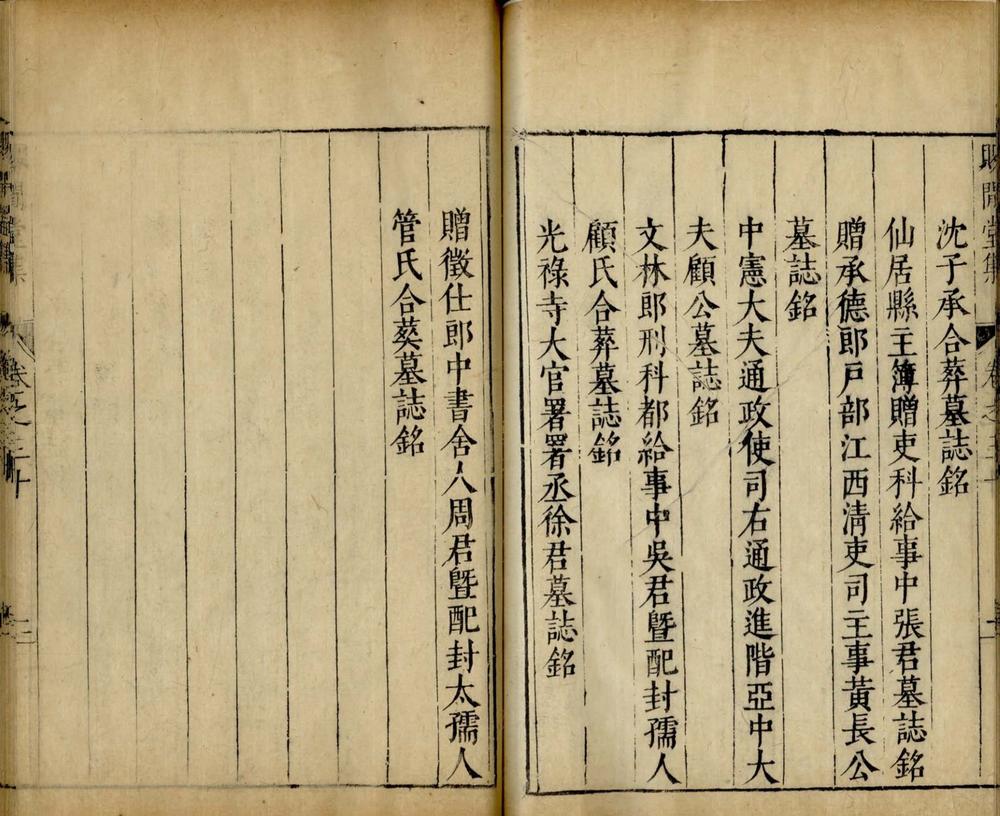 沈子承合葬墓誌銘
仙居縣主簿贈吏科給事中張君墓誌銘
贈承德郎戸部江西清吏司主事黃長公
墓誌銘
中憲大夫通政使司右通政進階亞中大
夫顧公墓誌銘
文林郎刑科都給事中吳君暨配封孺人
顧氏合葬墓誌銘
光祿寺大官署署丞徐君墓誌銘
贈徵仕郎中書舍人周君暨配封太孺人
管氏合葬墓誌銘
卷之二十